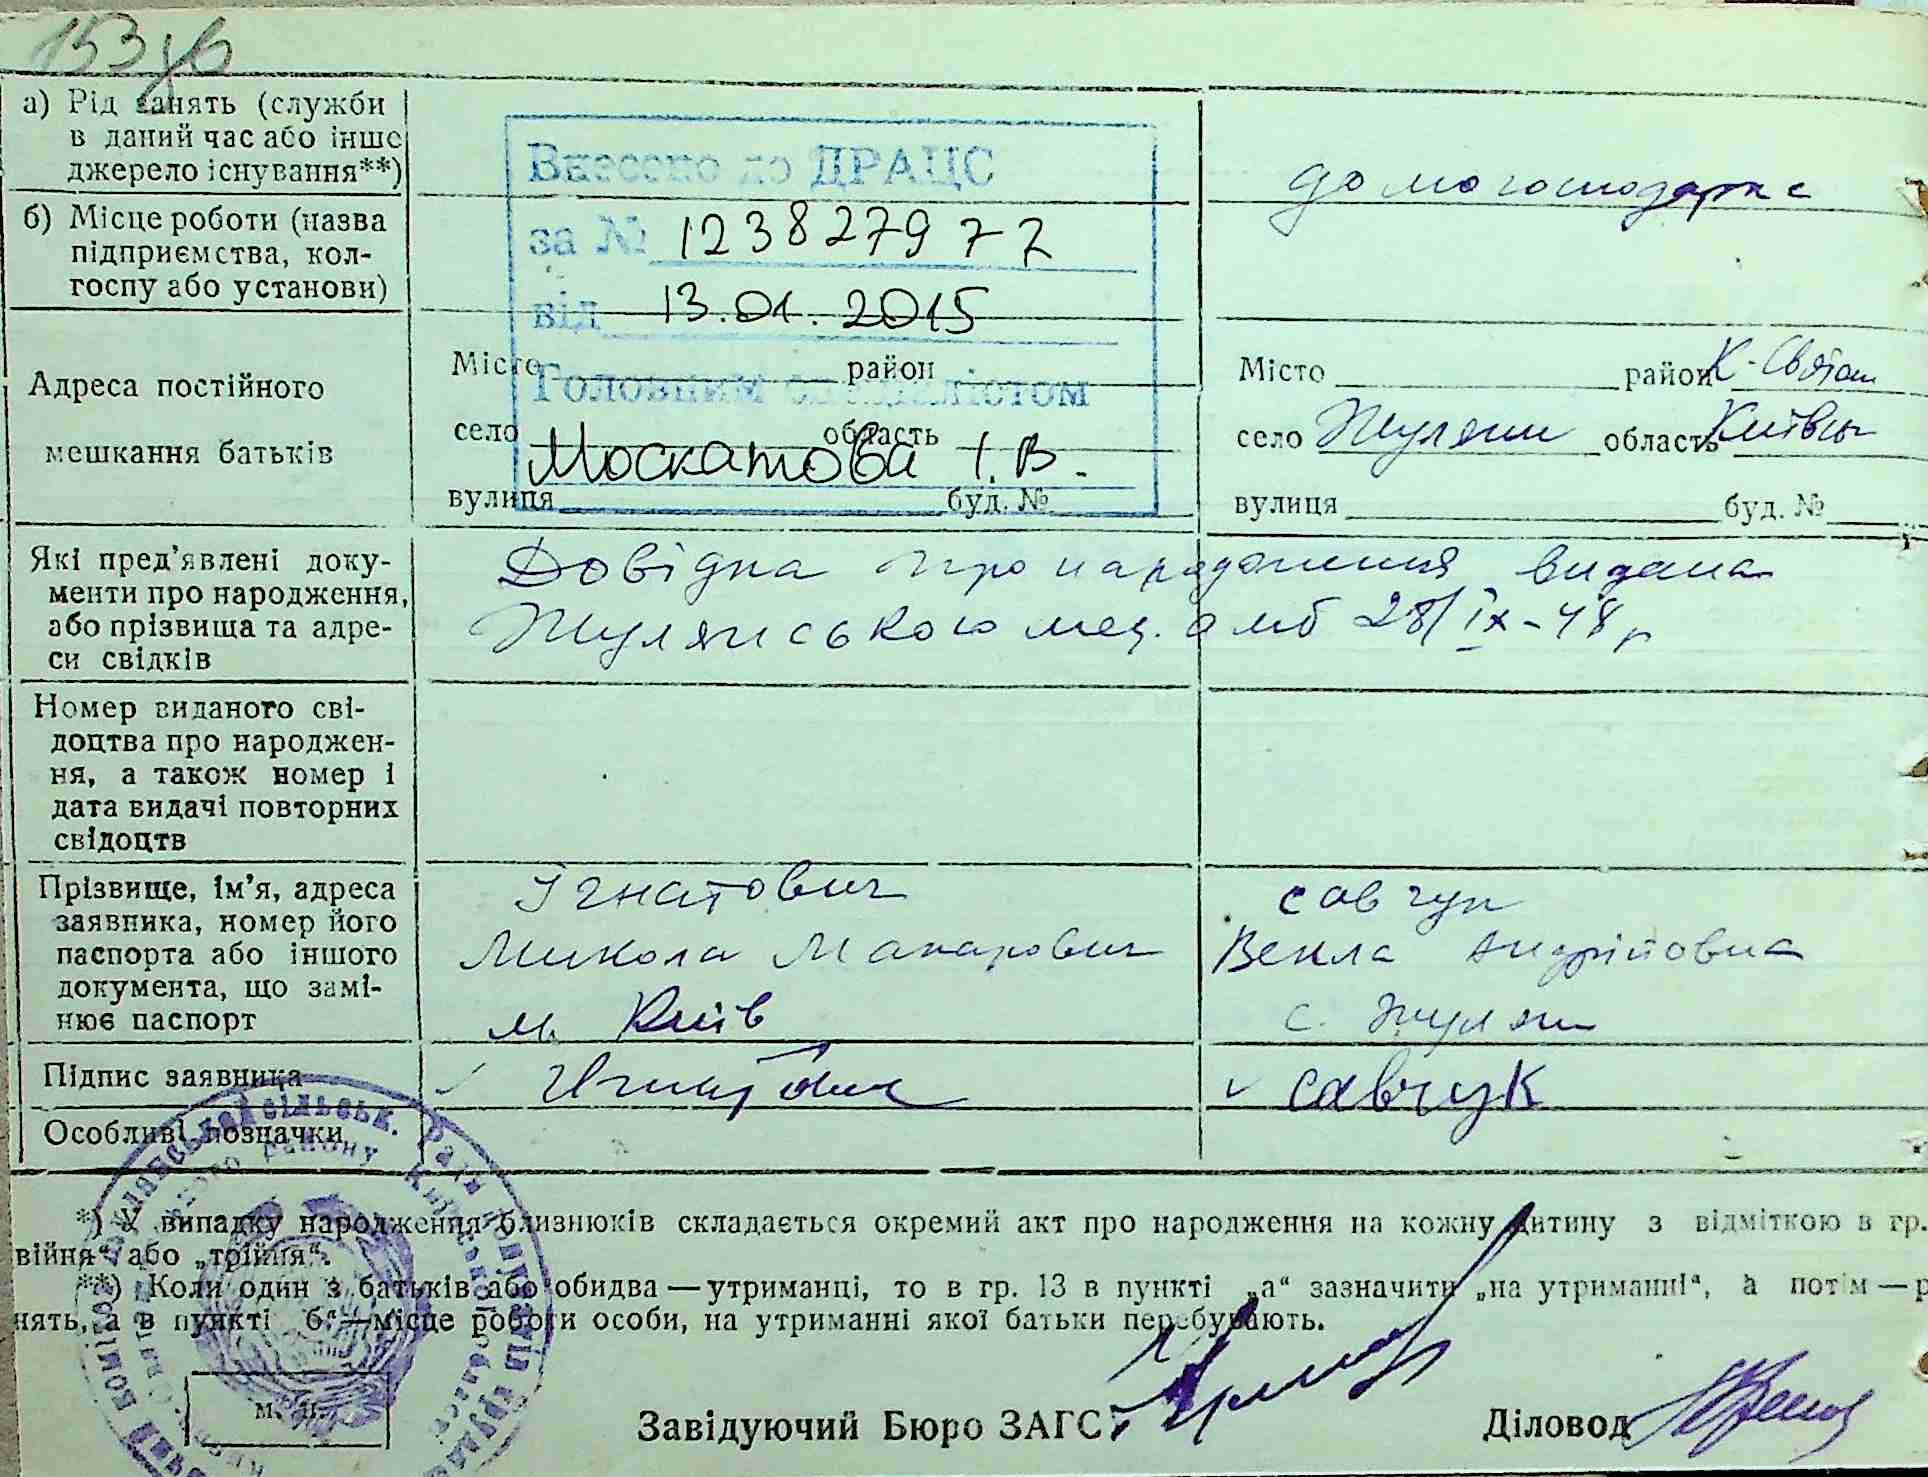 153
а) Рід занять (служби
в даний час або інше
джерело існування**)
домогосподарка
б) Місце роботи (назва
підприємства, кол-
госпу або установи)
Внесено до ДРАЦС
за № 123827977
від 13.01.2015
Головним спеціалістом
Москатова І.В.
Адреса постійного
мешкання батьків
Місто район
село область
вулиця буд. №
Місто район К-Святош
село Жуляни область Київськ
вулиця буд. №
Які пред’явлені доку-
менти про народження,
або прізвища та адре-
си свідків
Довідка про народження видана
Жулянською мед. амб 28/IX-48 р
Номер виданого сві-
доцтва про народжен-
ня, а також номер і
дата видачі повторних
свідоцтв
Прізвище, ім’я, адреса
заявника, номер його
паспорта або іншого
документа, що замі-
нює паспорт
Ігнатович
Микола Макарович
м. Київ
Савчук
Векла Андріївна
с. Жуляни
Підпис заявника
Игнатович
Савчук
Особливі позначки
*) У випадку народження близнюків складається окремий акт про народження на кожну дитину з відміткою в гр.
війня“ або „трійня“.
**) Коли один з батьків або обидва — утриманці, то в гр. 13 в пункті „а“ зазначити „на утриманні“, а потім — р
нять, а в пункті б“—місце роботи особи, на утриманні якої батьки перебувають.
м. п.
Завідуючий Бюро ЗАГС
Діловод